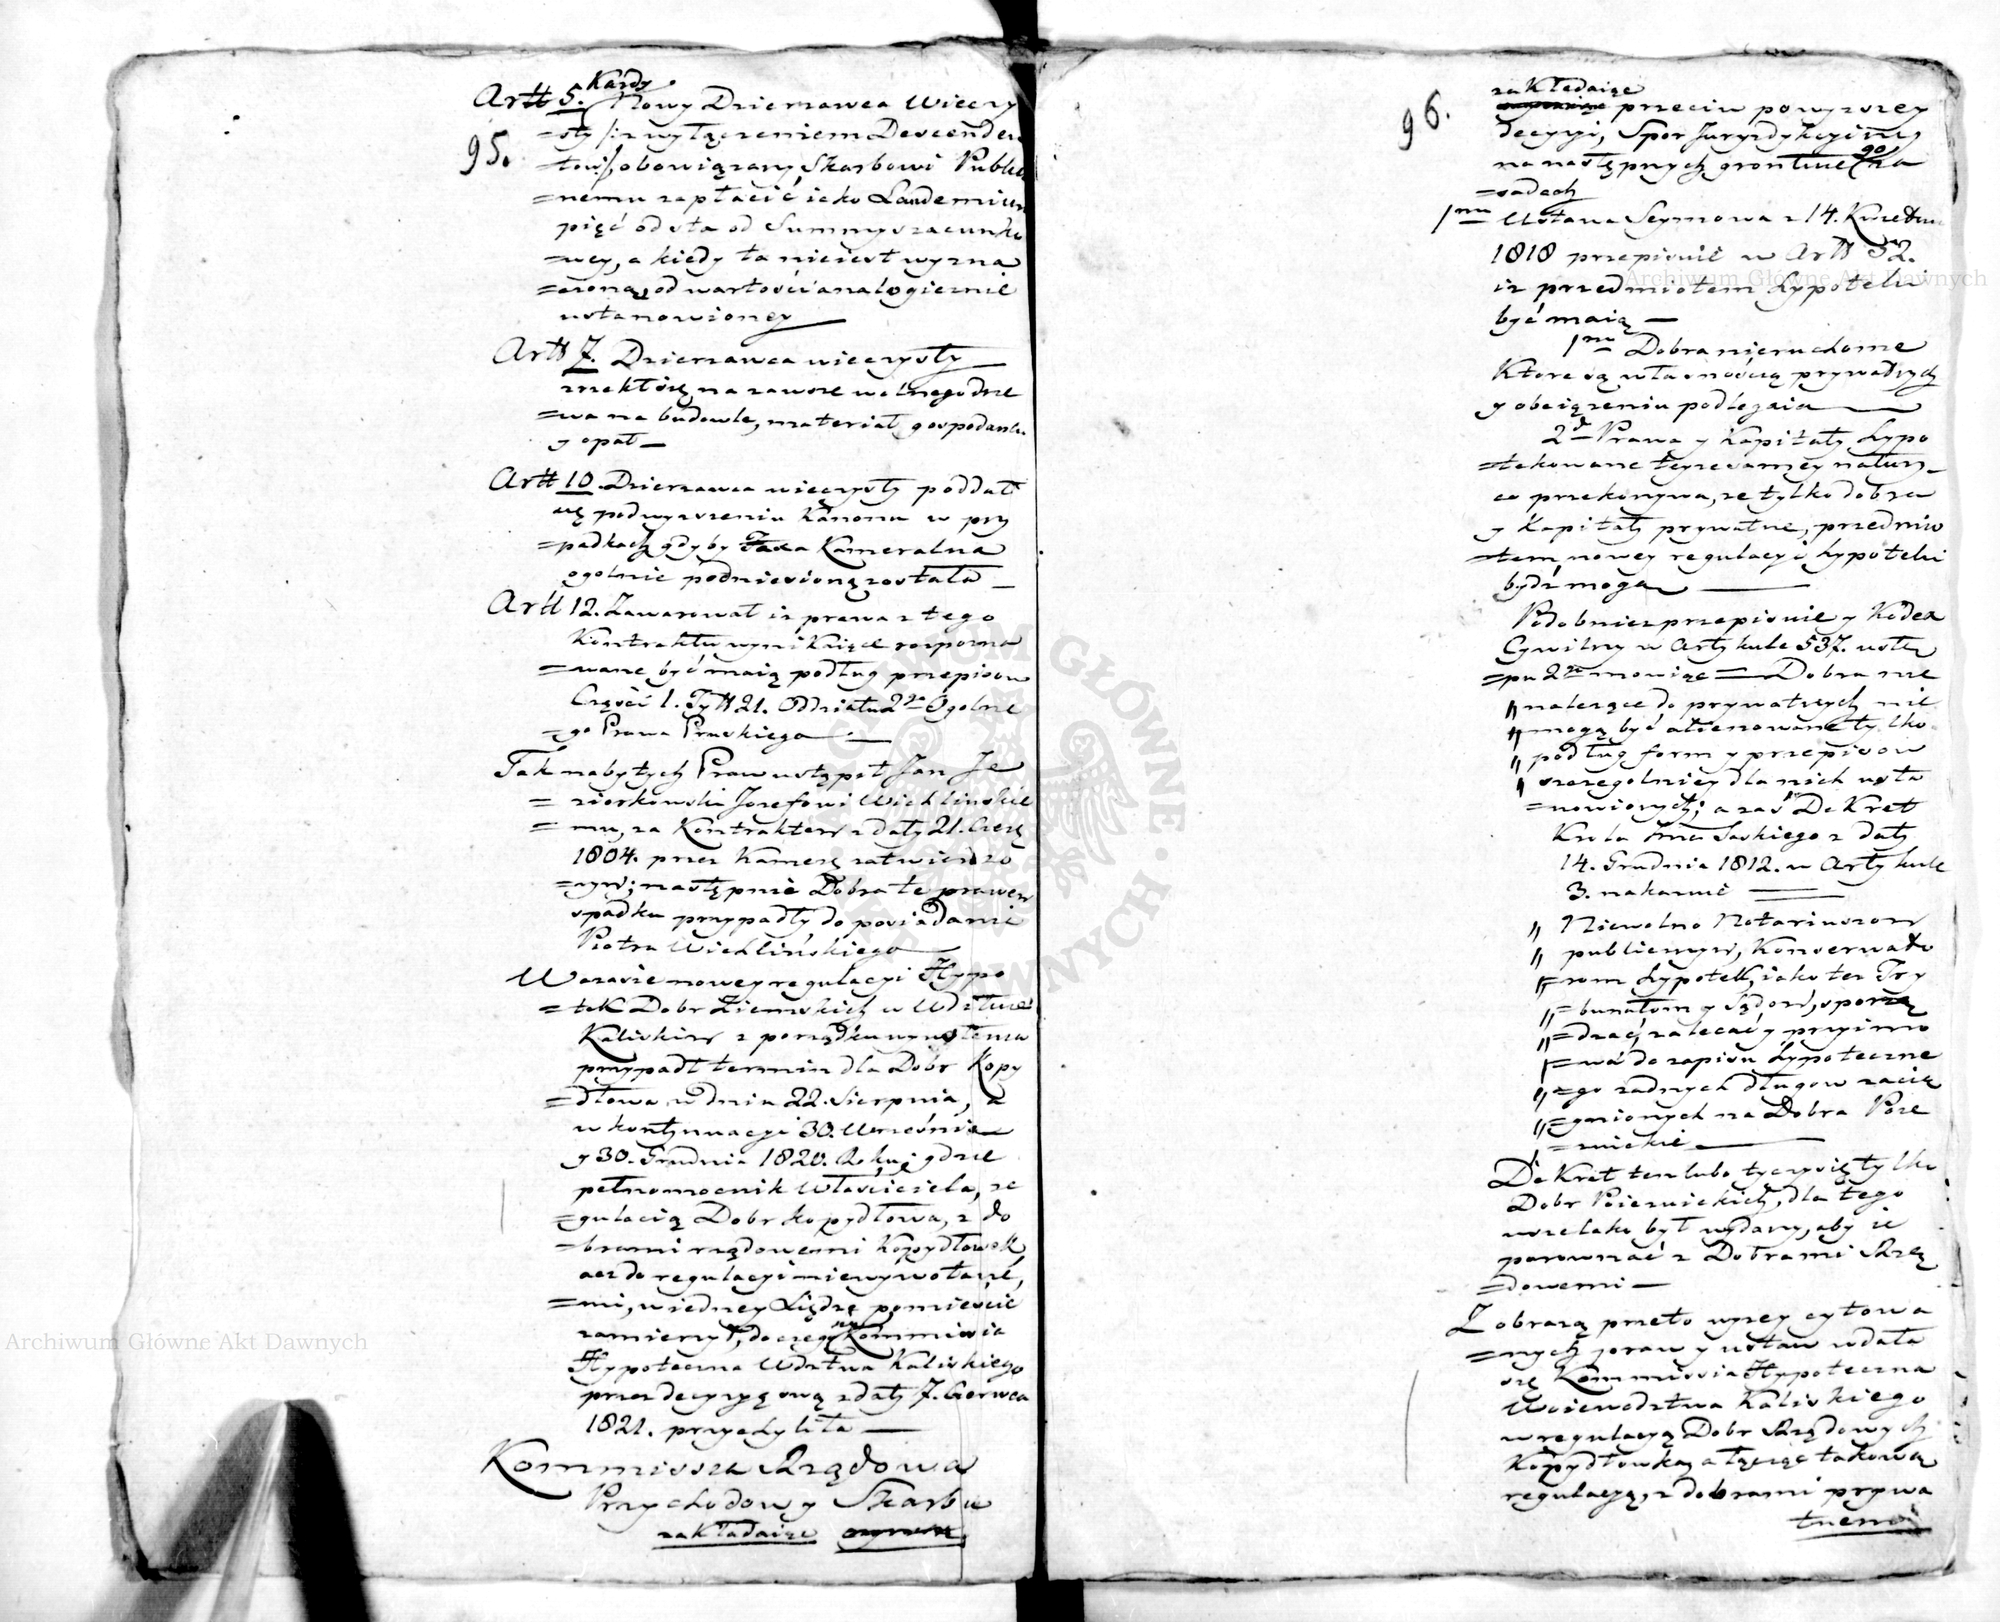 95.
Artt 5. Każdy Nowy Dzierzawca Wieczy
=sty /:z wyłączeniem Descenden
=tow:/ obowiązany Skarbowi Publicz
=nemu zapłacić iako Laudemium
pięć od sta od Summy szacunko
=wey, a kiedy ta nieiest wyzna
=czoną, od wartości analogicznie
ustanowioney
Artt 7. Dzierzawca wieczysty
zrzekł się na zawsze wolnego drze
=wa na budowle, materiał gospodarski
y opał —
Artt 10. Dzierzawca wieczysty poddał
się podwyzszeniu Kanonu w przy
=padkach gdyby Taxa Kameralna
ogolnie podniesioną została —
Artt 12. Zawarował iz prawa z tego
Kontraktu wynikłe rozpozna
=wane być maią podług przepisow
Części 1. Tytt 21. Oddziału 2go Ogolne
=go Prawa Pruskiego
Tak nabytych Praw ustąpił Jan Je
=ziorkowski Jozefowi Wichlińskie
=mu, za Kontraktem z daty 21. Czerw
1804. przez Kamerę zatwierdzo
=nym; następnie Dobra te prawem
spadku przypadły do posiadani
Piotra Wichlińskiego
W czasie nowey regulacyi Hypo
=tek Dobr Ziemskich w Wdztwie
Kaliskim z porządku wywołania
przypadł termin dla Dobr Kopy
=dłowa w dniu 22. Sierpnia, a
w kontynuacyi 30. Wrześnie
y 30. Grudnia 1820. Roku; gdzie
pełnomocnik Właściciela, re
=gulacią Dobr Kopydłowa, z do
=brami rządowemi Kopydłowek
acz do regulacyi niewywołane,
=mi, w iedney Xiędze pomieścić
zamierzył, do czego się Kommissia
Hypoteczna Wdztwa Kaliskiego
przez decyzyą swą z daty 7. Czerwca
1821. przychyliła —
Kommissia Rządowa
Przychodow y Skarbu
zakładaiąc
96.
zakładaiąc
przeciw powyzszey
decyzyi, Spor Jurysdykcyiny
na następnych gruntuie go za
=sadach
1mo Ustawa Seymowa z 14. Kwietnia
1818 przepisuie w Artt 32.
iz przedmiotem hypoteki
być maią —
1mo Dobra nieruchome
Ktore są własnością prywatnych
y obciązeniu podlegaią
2do Prawa y Kapitały hypo
=tekowane teyze samey natury —
co przekonywa, ze tylko dobra
y Kapitały prywatne, przedmio
=tem nowey regulacyi hypoteki
bydz mogą
Podobniez przepisuie y Kodex
Cywilny w Artykule 537. ustę
=pu 2go mowiąc = Dobra nie
„ nalezące do prywatnych nie
„ mogą być alienowane tylko
„ podług form y przepisow
„ szczegolniey dla nich usta
=nowionych; a zaś Dekret
Krola Jmci Saskiego z daty
14. Grudnia 1812. w Artykule
3. nakazuie =
„ Niewolno Notariuszom
„ publicznym, Konserwato
„ =rom hypotek, iako tez Try
„ =bunałom y Sądom, sporzą
„ =dzać, zalecać y przyimo
„ =wać do zapisu hypoteczne
„ =go zadnych długow zacią
„ =gnionych na Dobra Poie
=zuickie
Dekret ten lubo tyczy się tylko
Dobr Poiezuickich, dla tego
wszelako był wydany, aby ie
porownać z Dobrami Rzą
=dowemi —
Z obrazą przeto wyzey cytowa
=nych praw y ustaw udała
się Kommissia Hypoteczna
Woiewodztwa Kaliskiego
w regulacyą Dobr Rządowych
Kopydłowka, a łącząc takową
regulacyą, z dobrami prywa
tnemi